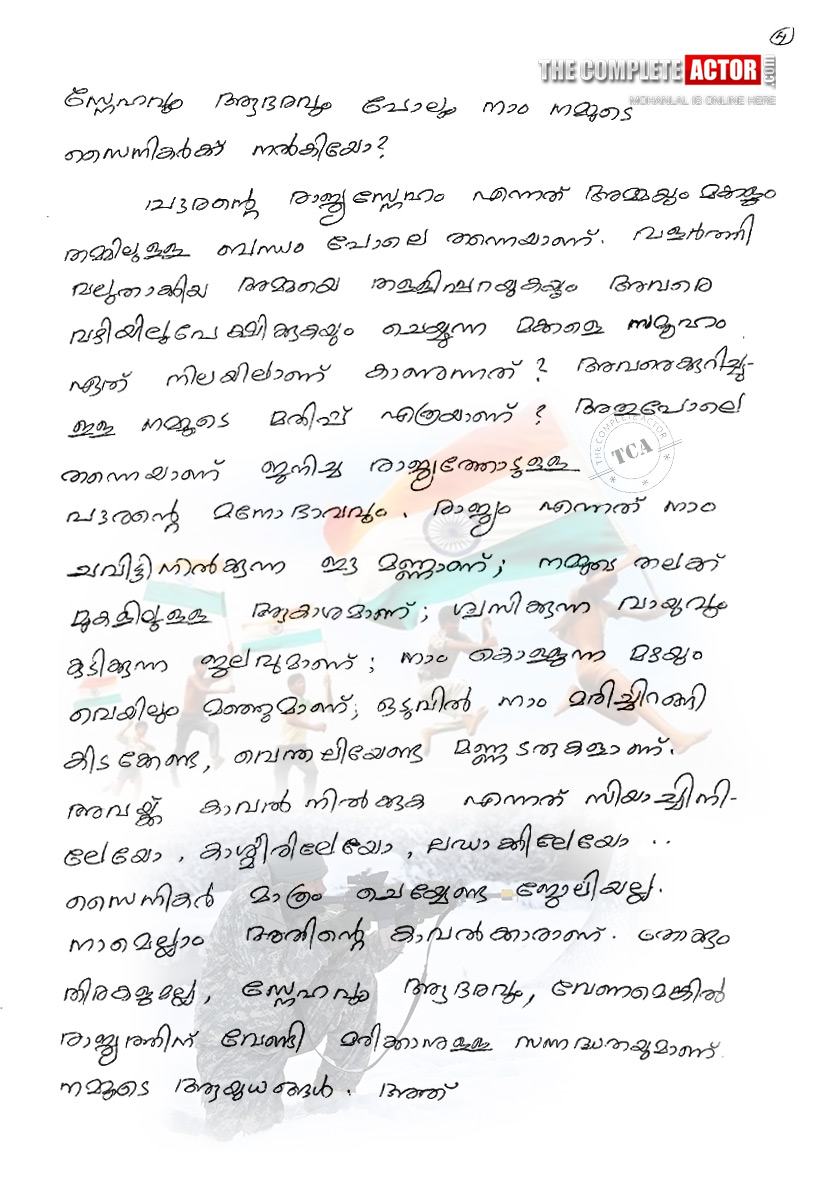 4
THE COMPLETE ACTOR .com
MOHANLAL IS ONLINE HERE
സ്നേഹവും ആദരവും പോലും നാം നമ്മുടെ
സൈനികർക്ക് നൽകിയോ?
പൗരന്റെ രാജ്യസ്നേഹം എന്നത് അമ്മക്കും മക്കളും
തമ്മിലുള്ള ബന്ധം പോലെ തന്നെയാണ്. വളർത്തി
വലുതാക്കിയ അമ്മയെ തള്ളിപ്പറയുകയും അവരെ
വഴിയിലുപേക്ഷിക്കുകയും ചെയ്യുന്ന മക്കളെ സമൂഹം
ഏത് നിലയിലാണ് കാണുന്നത്? അവരെക്കുറിച്ചു-
ള്ള നമ്മുടെ മതിപ്പ് എത്രയാണ്? അതുപോലെ
തന്നെയാണ് ജനിച്ച രാജ്യത്തോടുള്ള
പൗരന്റെ മനോഭാവവും. രാജ്യം എന്നത് നാം
ചവിട്ടിനിൽക്കുന്ന ഈ മണ്ണാണ്; നമ്മുടെ തലക്ക്
മുകളിലുള്ള ആകാശമാണ്; ശ്വസിക്കുന്ന വായുവും
കുടിക്കുന്ന ജലവുമാണ്; നാം കൊള്ളുന്ന മഴയും
വെയിലും മഞ്ഞുമാണ്; ഒടുവിൽ നാം മരിച്ചിറങ്ങി
കിടക്കേണ്ട, വെന്തലിയേണ്ട മണ്ണടരുകളാണ്.
അവയ്ക്ക് കാവൽ നിൽക്കുക എന്നത് സിയാച്ചിനി-
ലേയോ, കാശ്മീരിലേയോ, ലഡാക്കിലേയോ ..
സൈനികർ മാത്രം ചെയ്യേണ്ട ജോലിയല്ല.
നാമെല്ലാം അതിന്റെ കാവൽക്കാരാണ്. തോക്കും
തിരകളുമല്ല, സ്നേഹവും ആദരവും, വേണമെങ്കിൽ
രാജ്യത്തിന് വേണ്ടി മരിക്കാനുള്ള സന്നദ്ധതയുമാണ്
നമ്മുടെ ആയുധങ്ങൾ. അത്
THE COMPLETE ACTOR
TCA